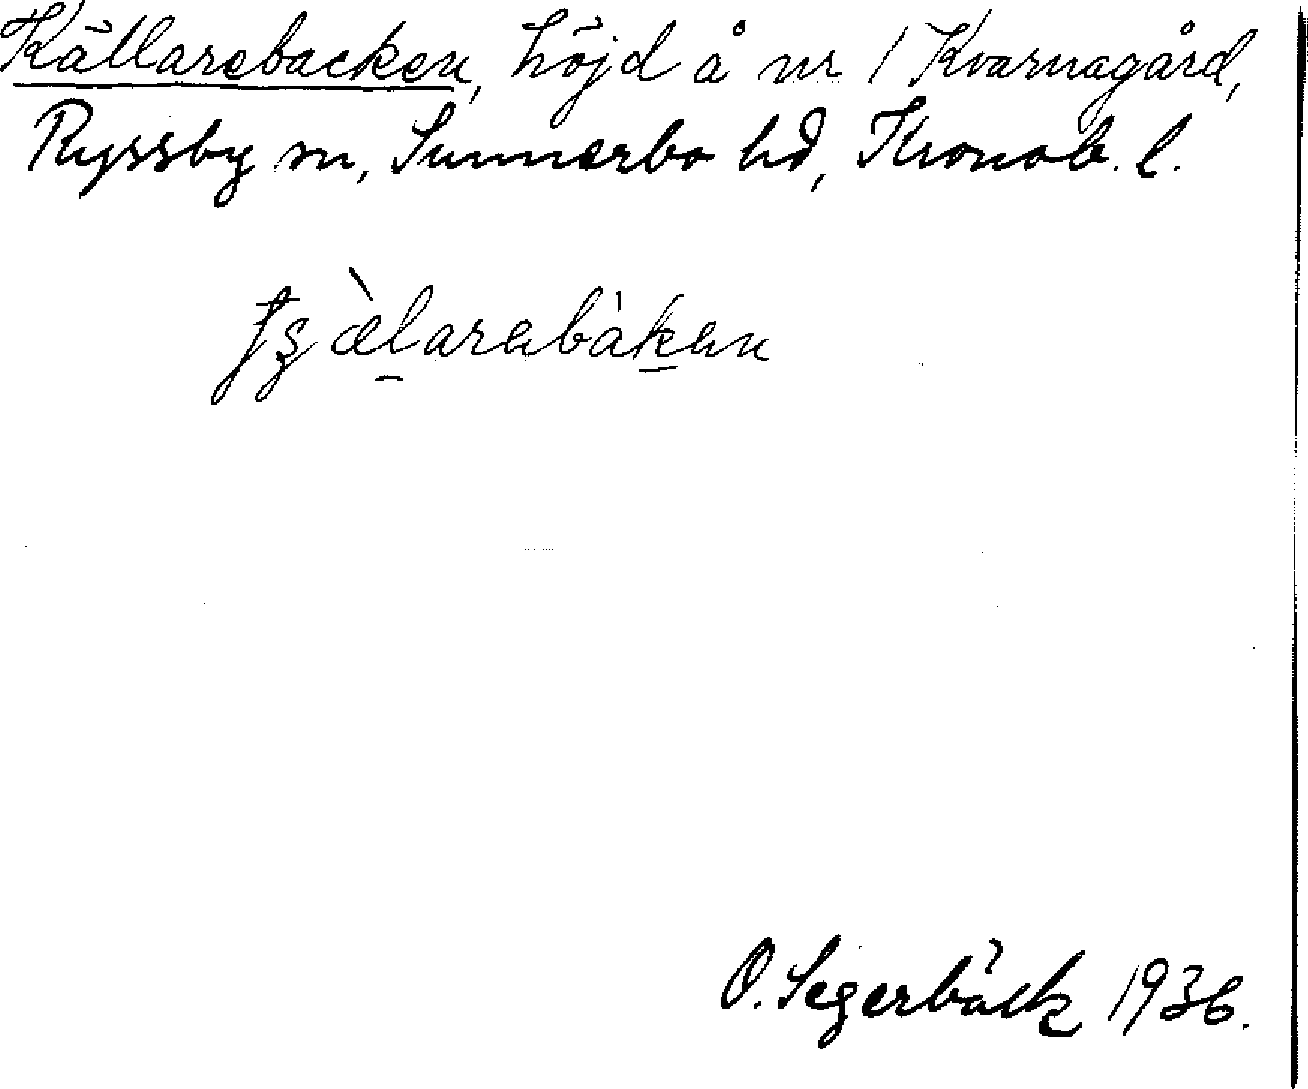 Källarebacken, höjd å nr 1 Kvarnagård,
Ryssby sn, Sunnerbo hd, Kronob. l.
O. Segerbäck 1936.